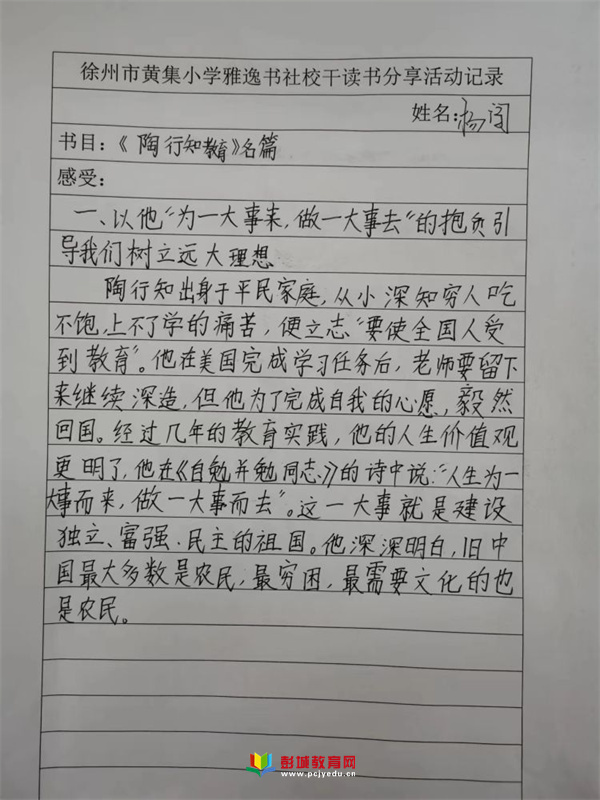 徐州市黄集小学雅逸书社校干读书分享活动记录
姓名:杨闯
书目:《陶行知教育》名篇
感受:
一、以他“为一大事来,做一大事去”的抱负引
导我们树立远大理想
陶行知出身于平民家庭,从小深知穷人吃
不饱,上不了学的痛苦,便立志“要使全国人受
到教育”。他在美国完成学习任务后,老师要留下
来继续深造,但他为了完成自我的心愿,毅然
回国。经过几年的教育实践,他的人生价值观
更明了,他在《自勉并勉同志》的诗中说:“人生为一
大事而来,做一大事而去”。这一大事就是建设
独立、富强.民主的祖国。他深深明白,旧中
国最大多数是农民,最穷困,最需要文化的也
是农民。
彭城教育网
www.pcjyedu.cn